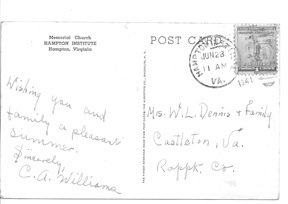 Memorial Church
HAMPTON INSTITUTE
Hampton, Virginia
POST CARD
HAMPTON
JUN 28
11 AM
1941
VA.
Wishing you and
family a pleasant
summer.
Sincerely,
C. A. Williams
Mrs. W. L. Dennis & Family
Castleton, Va.
Rapp. Co.